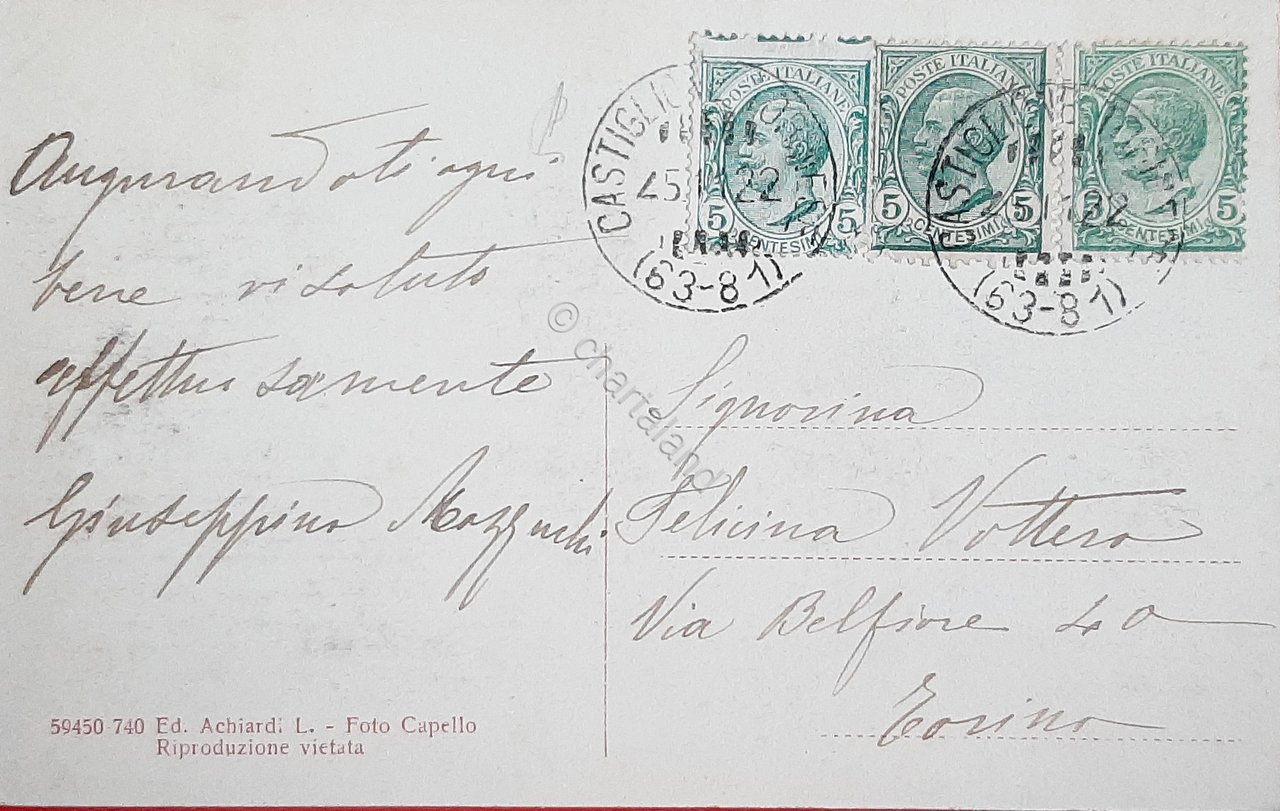 Augurandoti ogni
bene vi saluto
affettuosamente
Giuseppina
POSTE ITALIANE
5 CENTESIMI 5
POSTE ITALIANE
5 CENTESIMI 5
POSTE ITALIANE
5 CENTESIMI 5
22
(63-81)
22
(63-81)
© chartaland
Signorina
Felicina Vottero
Via Belfiore 40
Torino
59450-740 Ed. Achiardi L. - Foto Capello
Riproduzione vietata